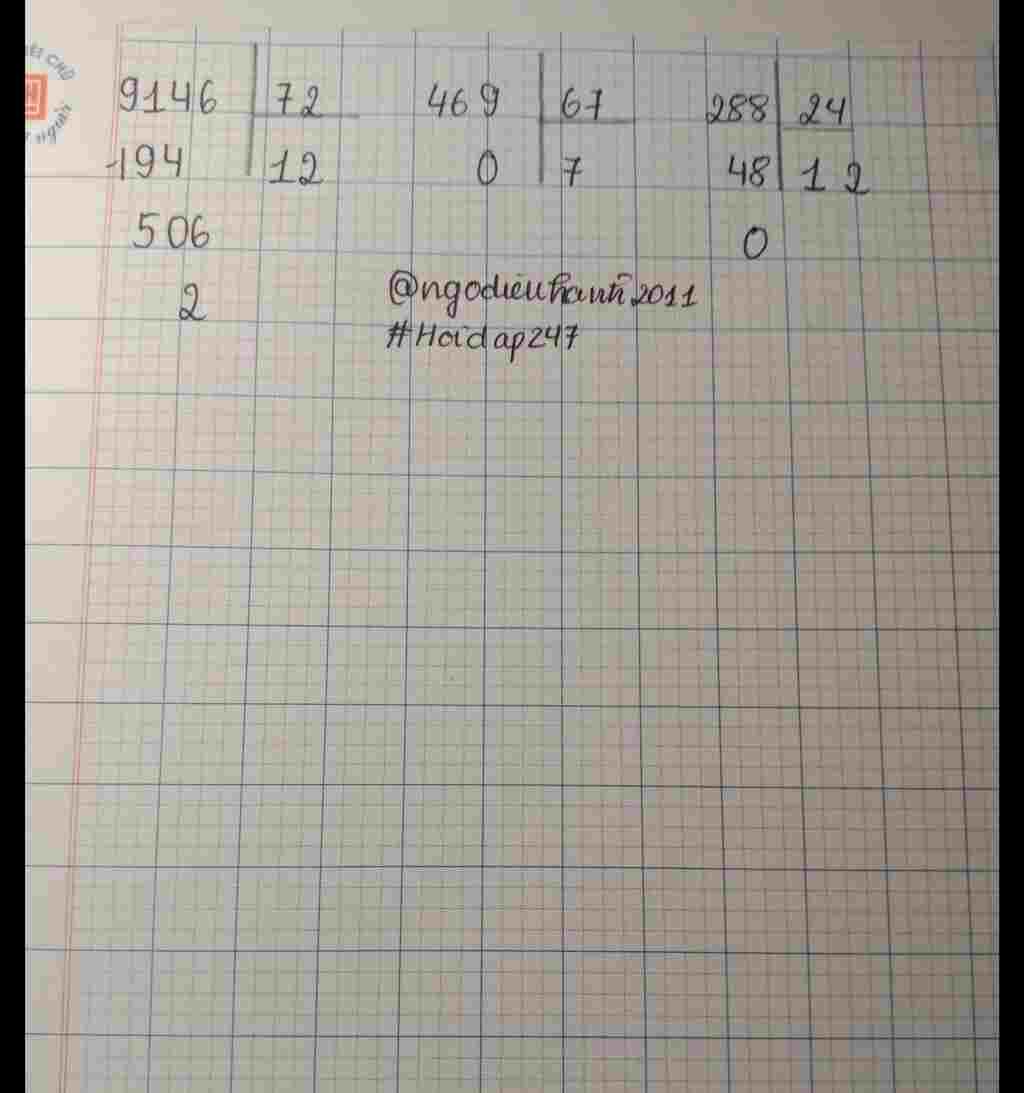 9146 72 469 67 288 24
194 12 0 7 48 12
506 0
2
@ngodieuhanh2011
#Hoidap247